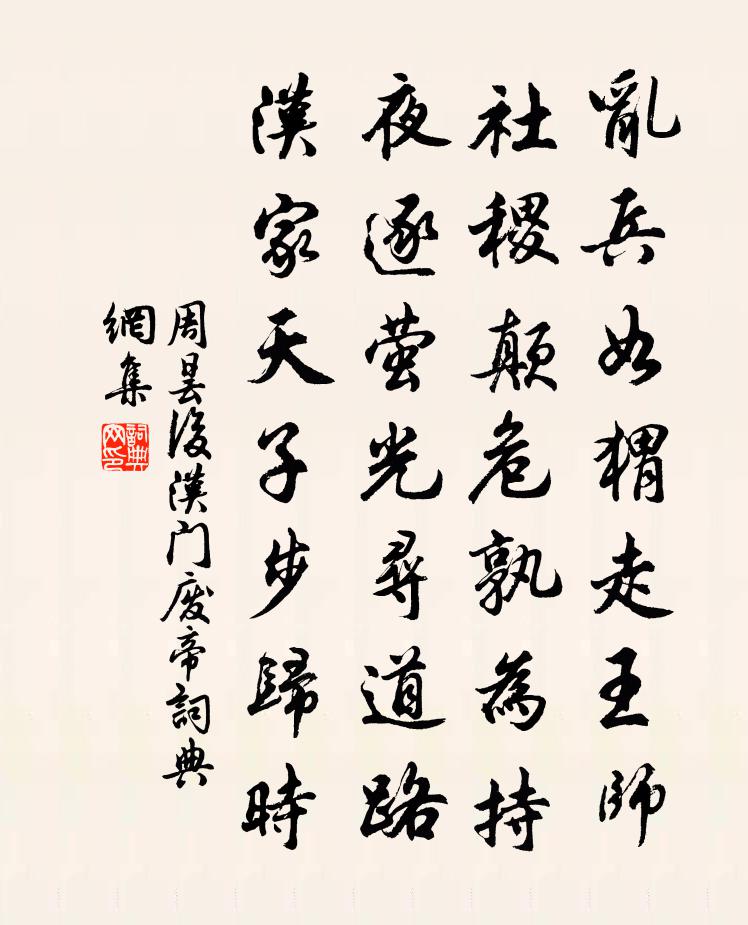 亂兵如猬走王師
社稷顛危孰為持
夜逐螢光尋道路
漢家天子步歸時
周曇後漢門廢帝詞典
網集
詞典
网印